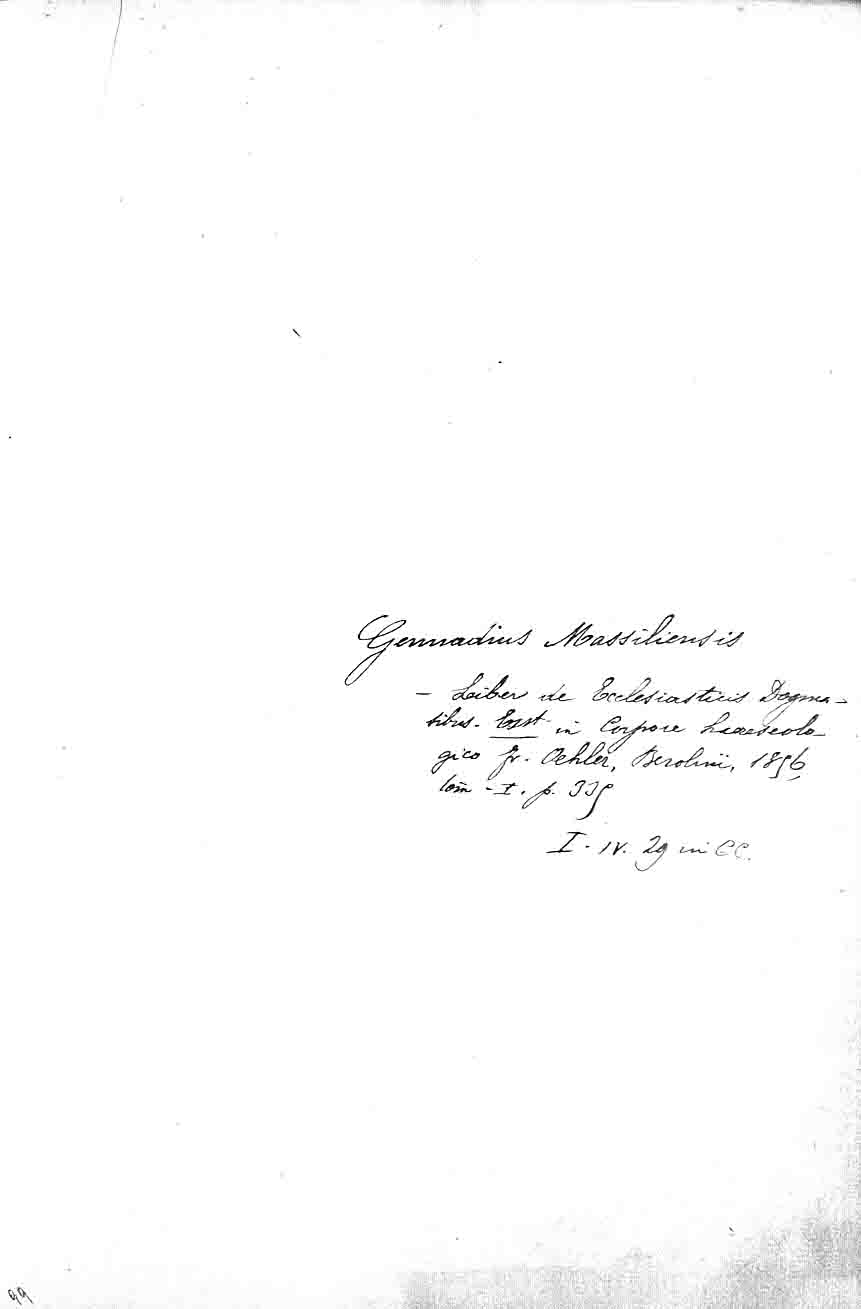 Gennadius Massiliensis
- Liber de Ecclesiasticis Dogma-
tibus. Exst in Corpore haereseolo-
gico Fr. Oehler, Berolini, 1856,
tom - I. p. 335
I. IV. 29 in CC.
99